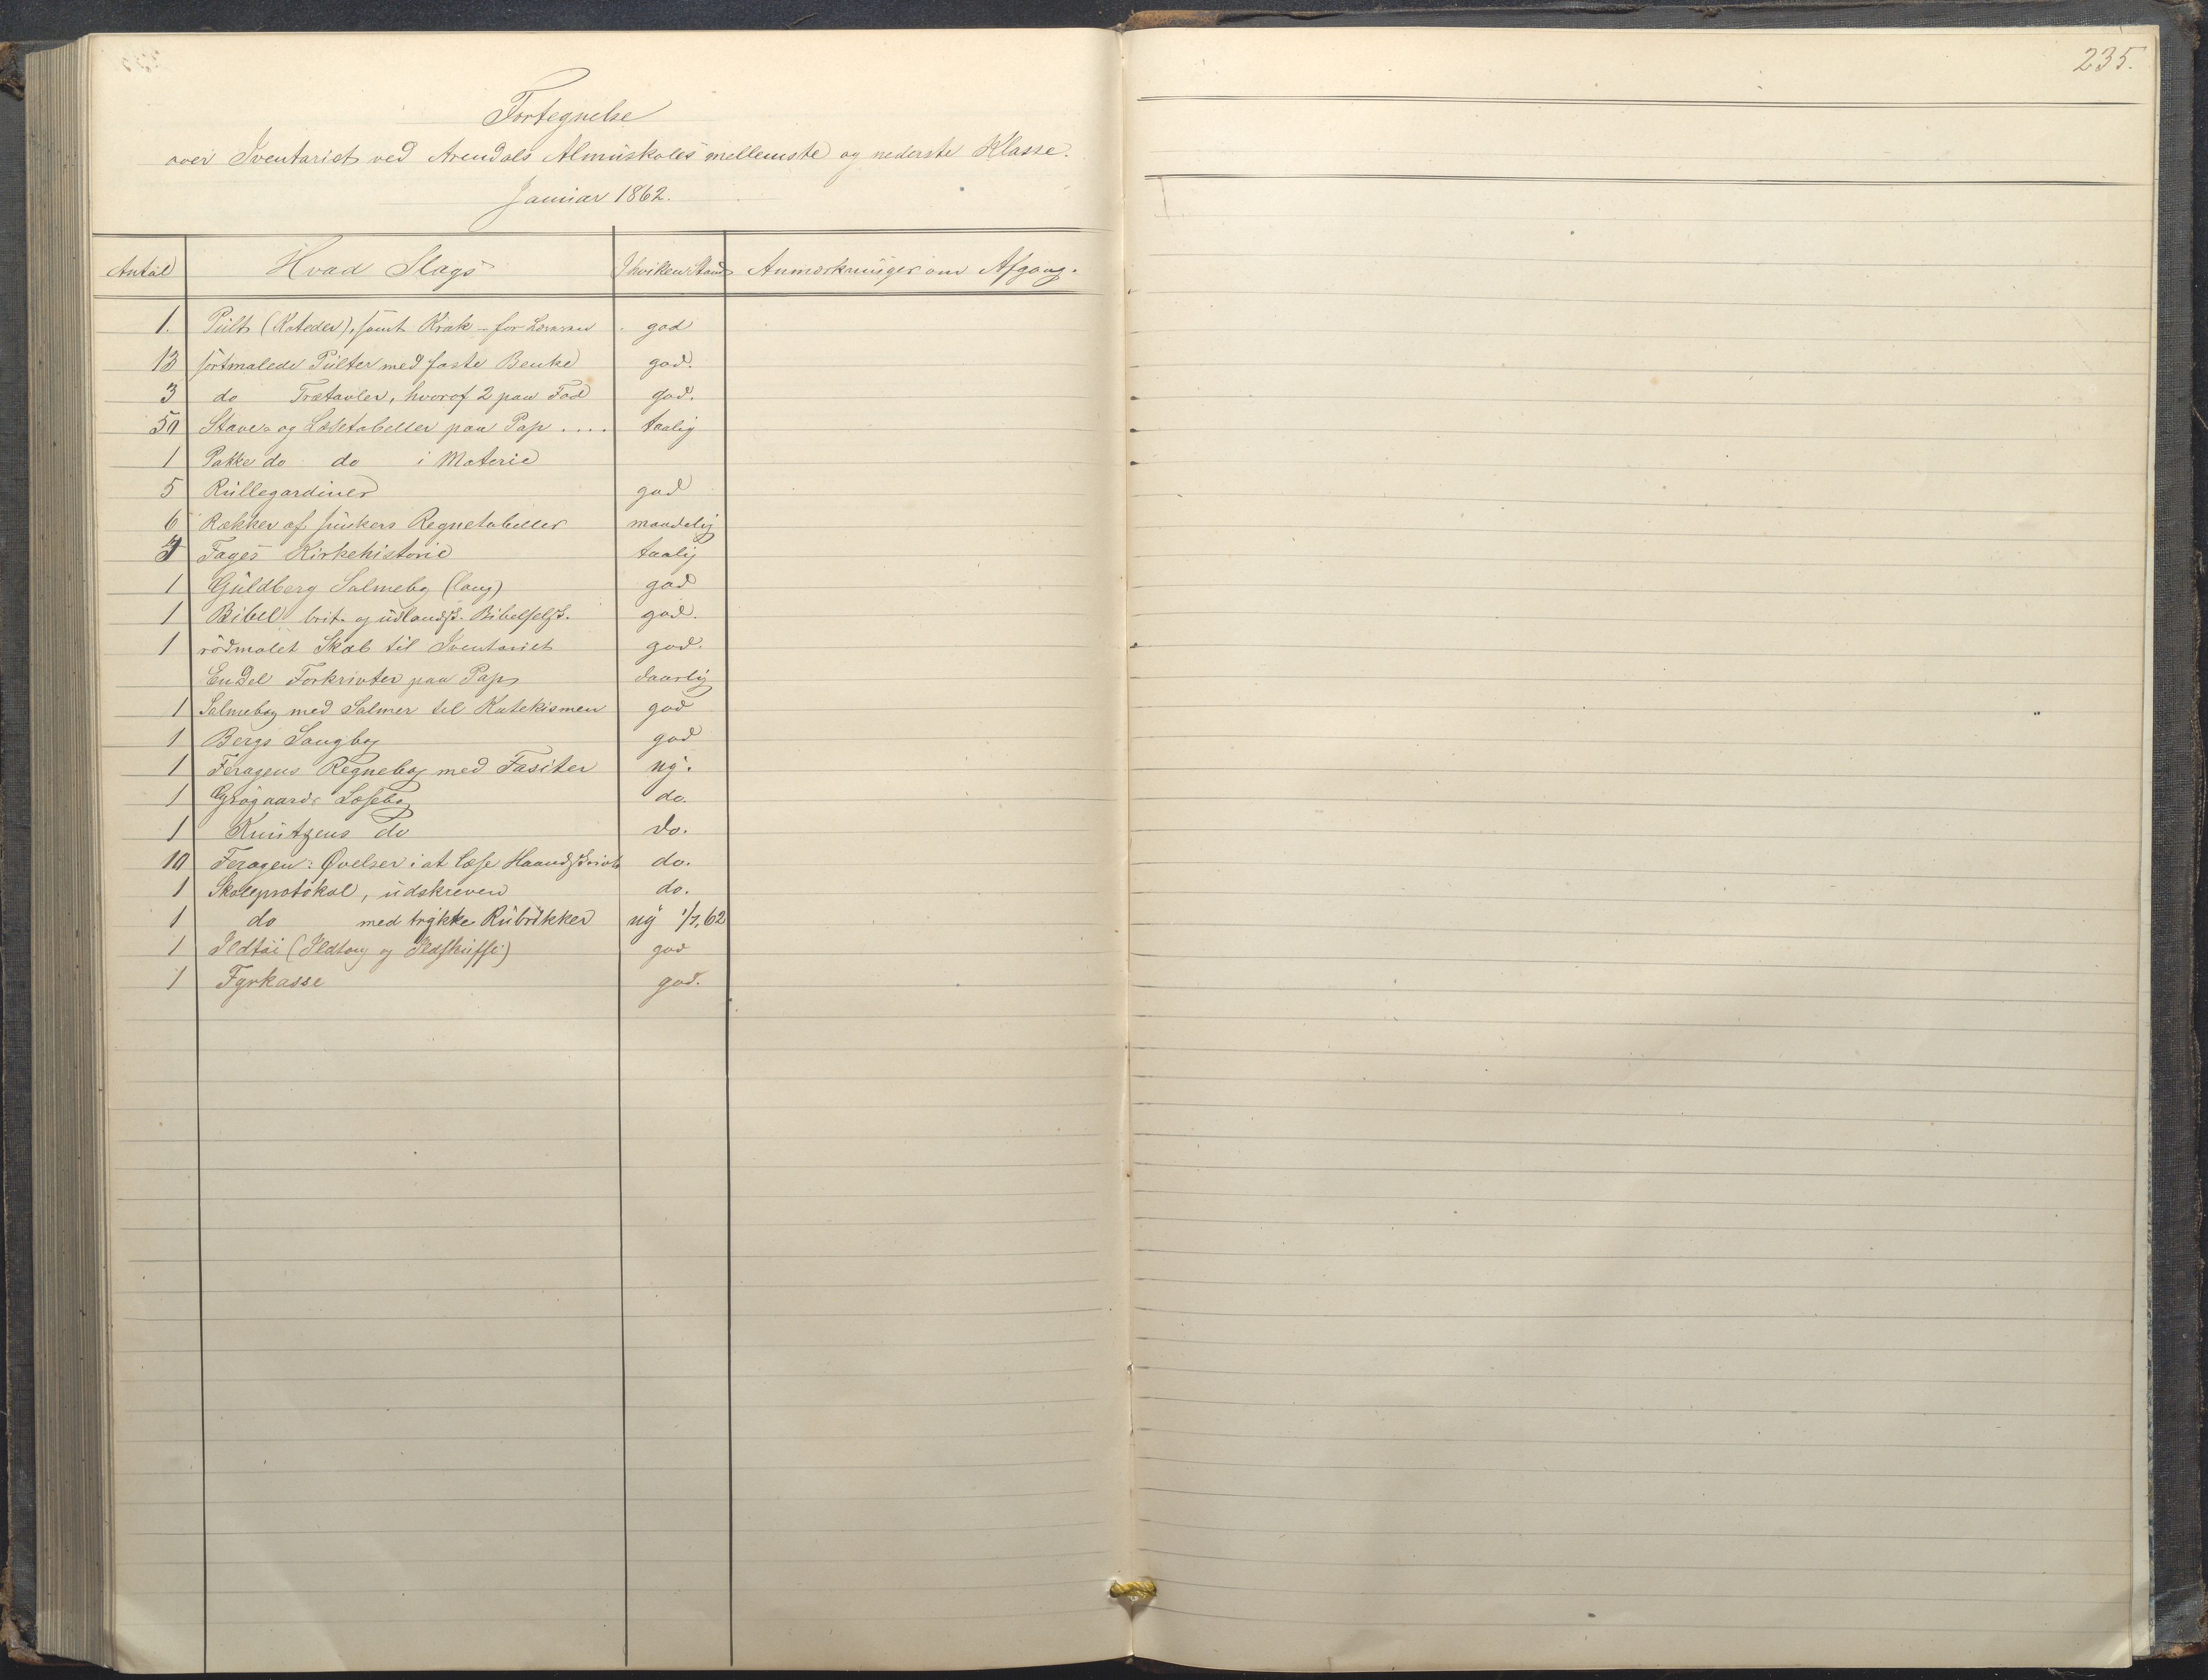 235.
Fortegnelse
over Iventariet ved Arendals Almuskoles mellemste og nederste Klasse.
Januar 1862.
Antal Hvad Slags I hvilken Stand Anmærkninger om Afgang.
1. Pult (Kateder), samt Krak - for Læreren god
13 sortmalede Pulter med faste Benke god.
3 do Trætavler, hvoraf 2 paa Fod god.
50 Stave- og Læsetabeller paa Pap .... taalig
1 Pakke do do i Materie
5 Rullegardiner god
6 Rækker af Junkers Regnetabeller maadelig
Fayes Kirkehistorie taalig
1 Guldberg Salmebog (lang) god
1 Bibel brit. og udlandsk. Bibelselsk. god.
1 rödmalet Skab til Iventariet god.
En Del Forkrivter paa Pap daarlig
1 Salmebog med Salmer til Katekismen god
1 Bergs Sangbog god
1 Feragens Regnebog med Fasiter ny.
1 Grögaards Læsebog do.
1 Knutzens do do.
10 Feragen: Øvelser i at læse Haandskrivt do.
1 Skoleprotokol, udskreven do.
1 do med trykke Rubrikker ny 1/7, 62
1 Ildtöi (Ildtang og Ildskuffe) god
1 Fyrkasse god.